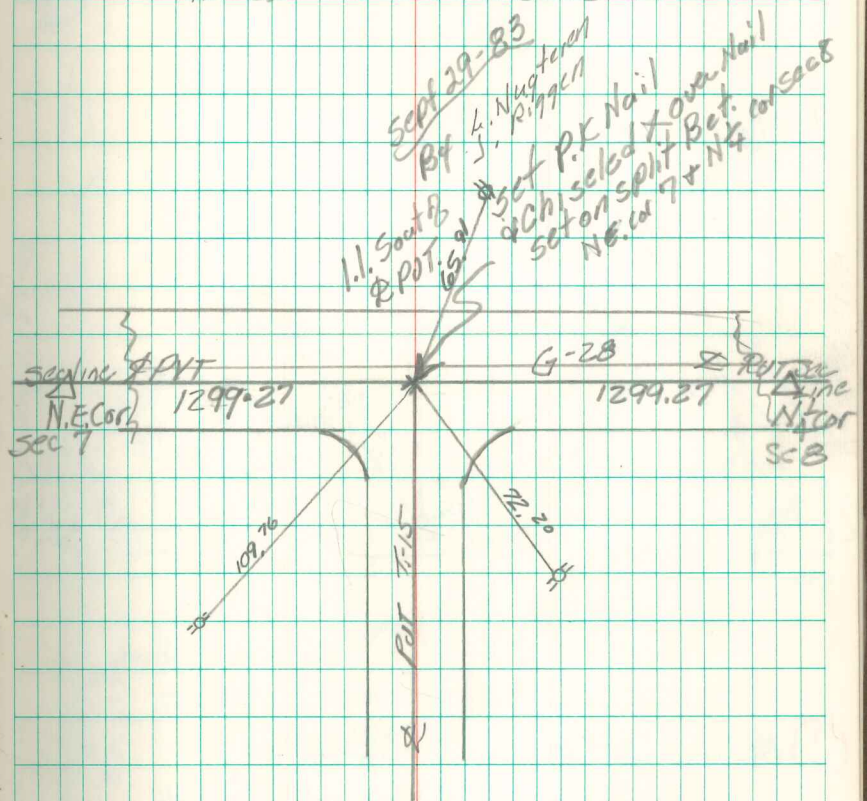 Sept 29-83
By L. Nugteren
J. Riggen
Set P.K Nail
& Chiseled X over Nail
set on split Bet.
NE. cor 7 & N¼ cor sec 8
1.1. South of
℄ PVT.
65.91
G-28
sec line ℄ PVT
1299.27
N.E. Cor
sec 7
℄ PVT sec
line
1299.27
N¼ Cor
Sc 8
109.76
72.20
PVT T-15
℄